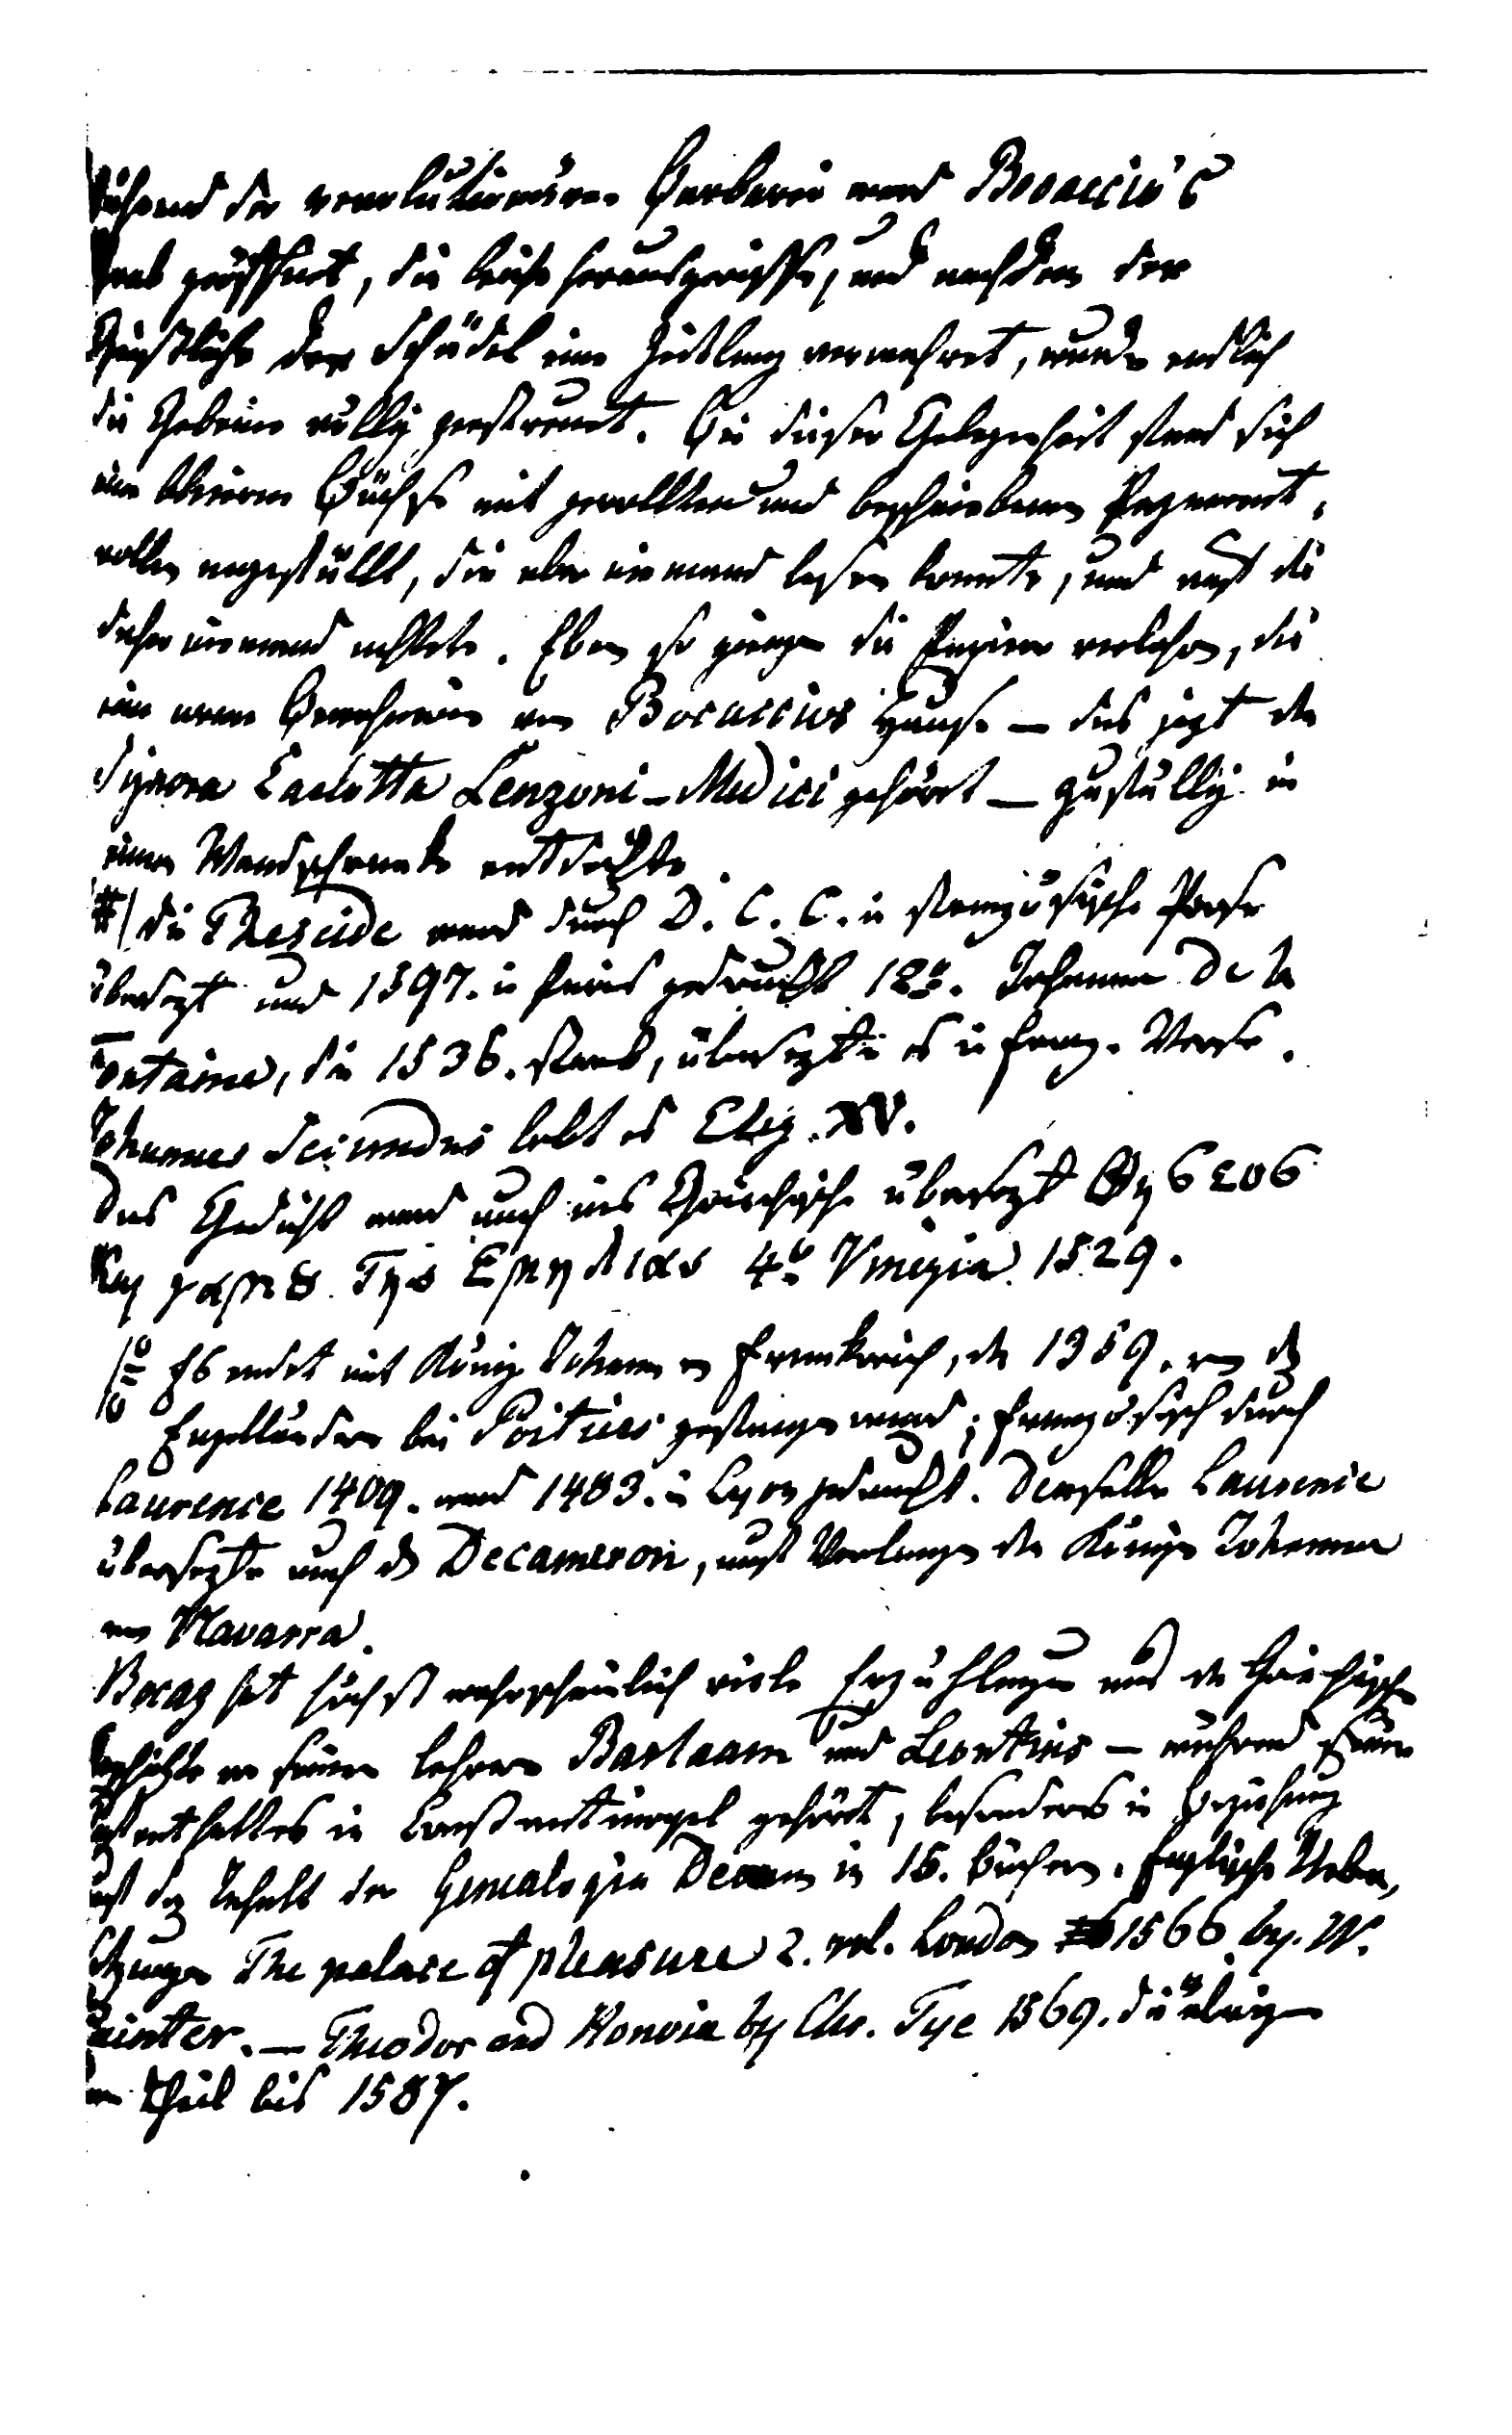 während der revolutionären Barbarei ward Bocaccio's
Grab geöffnet, die Leiche herausgerissen, und nachdem der
Geistliche den Schädel eine Zeitlang verwahret, wurden endlich
die Gebeine völlig zerstreut. Bei dieser Gelegenheit fand sich
eine bleierne Büchse mit gerollten und beschriebenen Pergament,
rollen angefüllt, die aber niemand lesen konnte, und auf die
daher niemand achtete. Eben so giengen die Papiere verlohren, die
ein armer Bewohner von Bocaccios Hause – das jezt der
Signora Carlotta Lenzoni-Medici gehört – zufällig in
einem Wandschranke entdeckte.
#) die Theseide ward durch D. C. C. in französische Prose
übersezt und 1597. in Paris gedruckt 12o. Johanna de la
Fontaine, die 1536. starb, übersezte es in franz. Verse.
Johannes Secundus lobt es Eleg. XV.
Das Gedicht ward auch ins Griechische übersezt Θησεος
Και γαμου της Εμηλιας 4o Vinegia 1529.
Es endet mit König Johann v Frankreich, der 1359. von den
Engelländern bei Poitiers gefangen ward; französisch durch
Laurence 1409. und 1483. in Lyon gedruckt. Derselbe Laurence
übersezte auch den Decameron, auf Verlangen der Königin Johanna
von Navarra.
Bocaz hat höchst wahrscheinlich viele Erzählungen aus der Griechischen
Geschichte von seinen Lehrern Barlaam und Leontius – während seines
Aufenthaltes in Constantinopel gehört, besonders in Beziehung
auf den Inhalt der Genealogia Deorum in 15. Büchern. Englische Ueber,
setzungen The palace of pleasure 2. vol. London 1566 by. W.
Painter. – Theodor and Honoria by Chr. Tye 1569. die übrigen
Theil bis 1587.